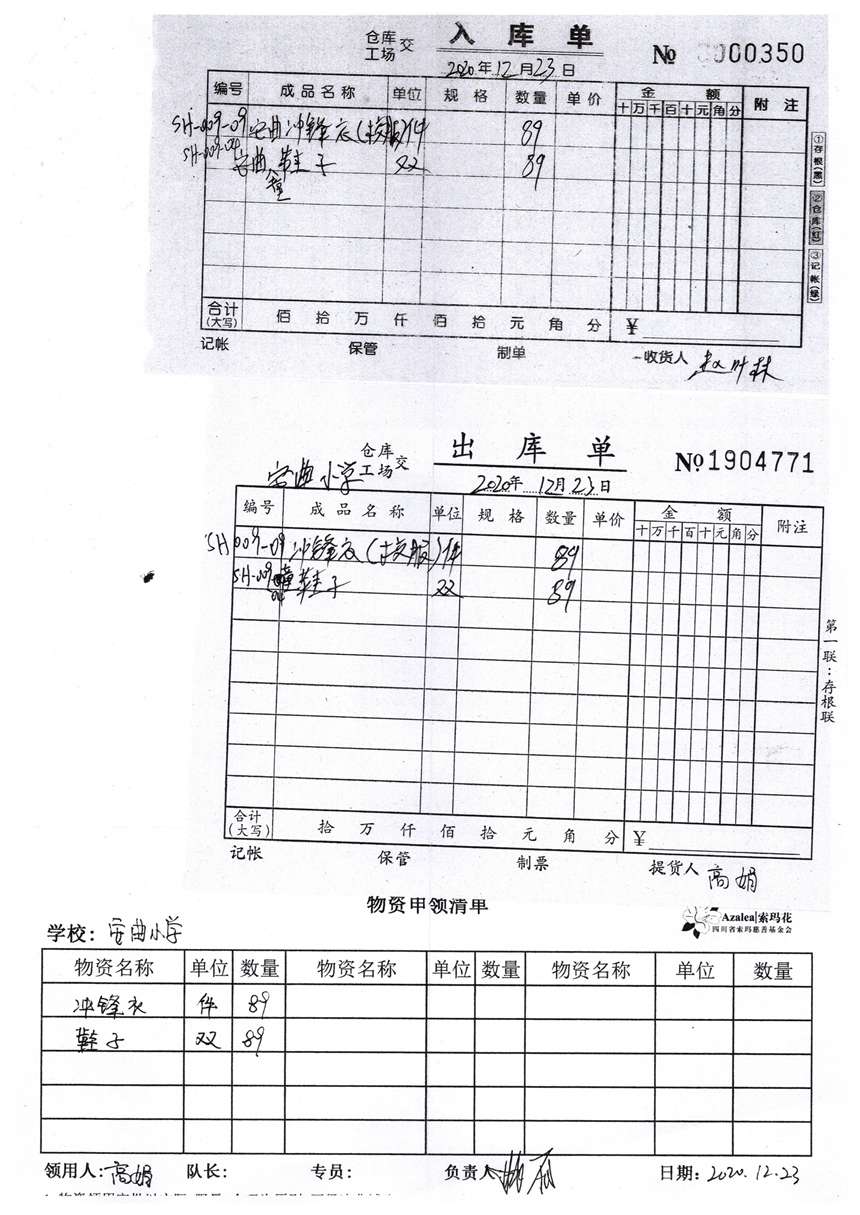 仓库
工场 交 入库单 № 0000350
2020年12月23日
编号 成品名称 单位 规格 数量 单价 金额 附注
十万千百十元角分
SH-009-09 安曲冲锋衣(校服) 件 89
安曲鞋子 双 89
童
①存根(黑)
②仓库(红)
③记帐(绿)
合计(大写) 佰拾万仟佰拾元角分 ¥
记帐 保管 制单 收货人
安曲小学 仓库
工场 交 出库单 №1904771
2020年12月23日
编号 成品名称 单位 规格 数量 单价 金额 附注
十万千百十元角分
SH 009-09 冲锋衣(校服) 件 89
SH-009 童鞋子 双 89
第一联:存根联
合计(大写) 拾万仟佰拾元角分 ¥
记帐 保管 制票 提货人 高娟
物资申领清单
Azalea|索玛花
四川省索玛慈善基金会
学校:安曲小学
物资名称 单位 数量 物资名称 单位 数量 物资名称 单位 数量
冲锋衣 件 89
鞋子 双 89
领用人:高娟 队长: 专员: 负责人 日期:2020.12.23